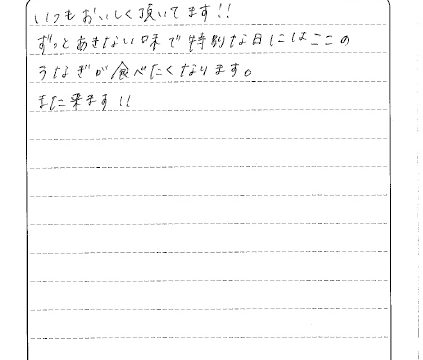 いつもおいしく頂いてます!!
ずっとあきない味で特別な日にはここの
うなぎが食べたくなります。
また来ます!!